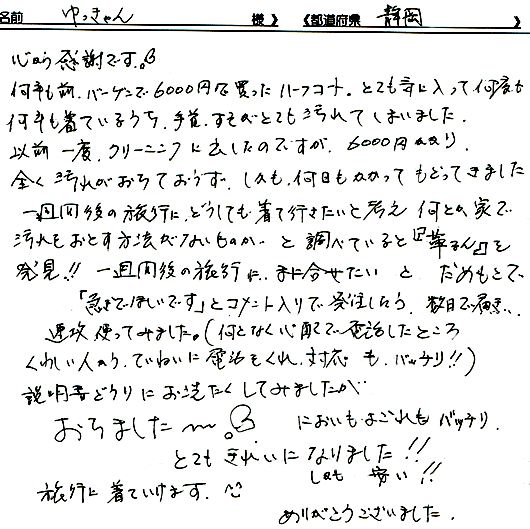 名前 ゆっきゃん 様 》 《都道府県 静岡 》
心から感謝です。
何年も前、バーゲンで6000円で買ったハーフコート。とても気に入って何度も
何年も着ているうち、手首、すそがとても汚れてしまいました。
以前一度、クリーニングに出したのですが、6000円かかり、
全く汚れがおちておらず、しかも、何日もかかってもどってきました
一週間後の旅行に、どうしても着て行きたいと考え 何とか家で
汚れをおとす方法がないものか、と調べていると『革きれい』を
発見!! 一週間後の旅行に、まに合せたい と だめもとで
「急ぎでほしいです」とコメント入りで発注したら、数日で届き、
速攻使ってみました。(何となく心配で電話したところ
くわしい人から、ていねいに電話をくれ、対応も、バッチリ!!)
説明書どうりにお洗たくしてみましたが
おちました〜。 においもよごれもバッチリ、
とてもきれいになりました!!
しかも 安い!!
旅行に着ていけます。
ありがとうございました。